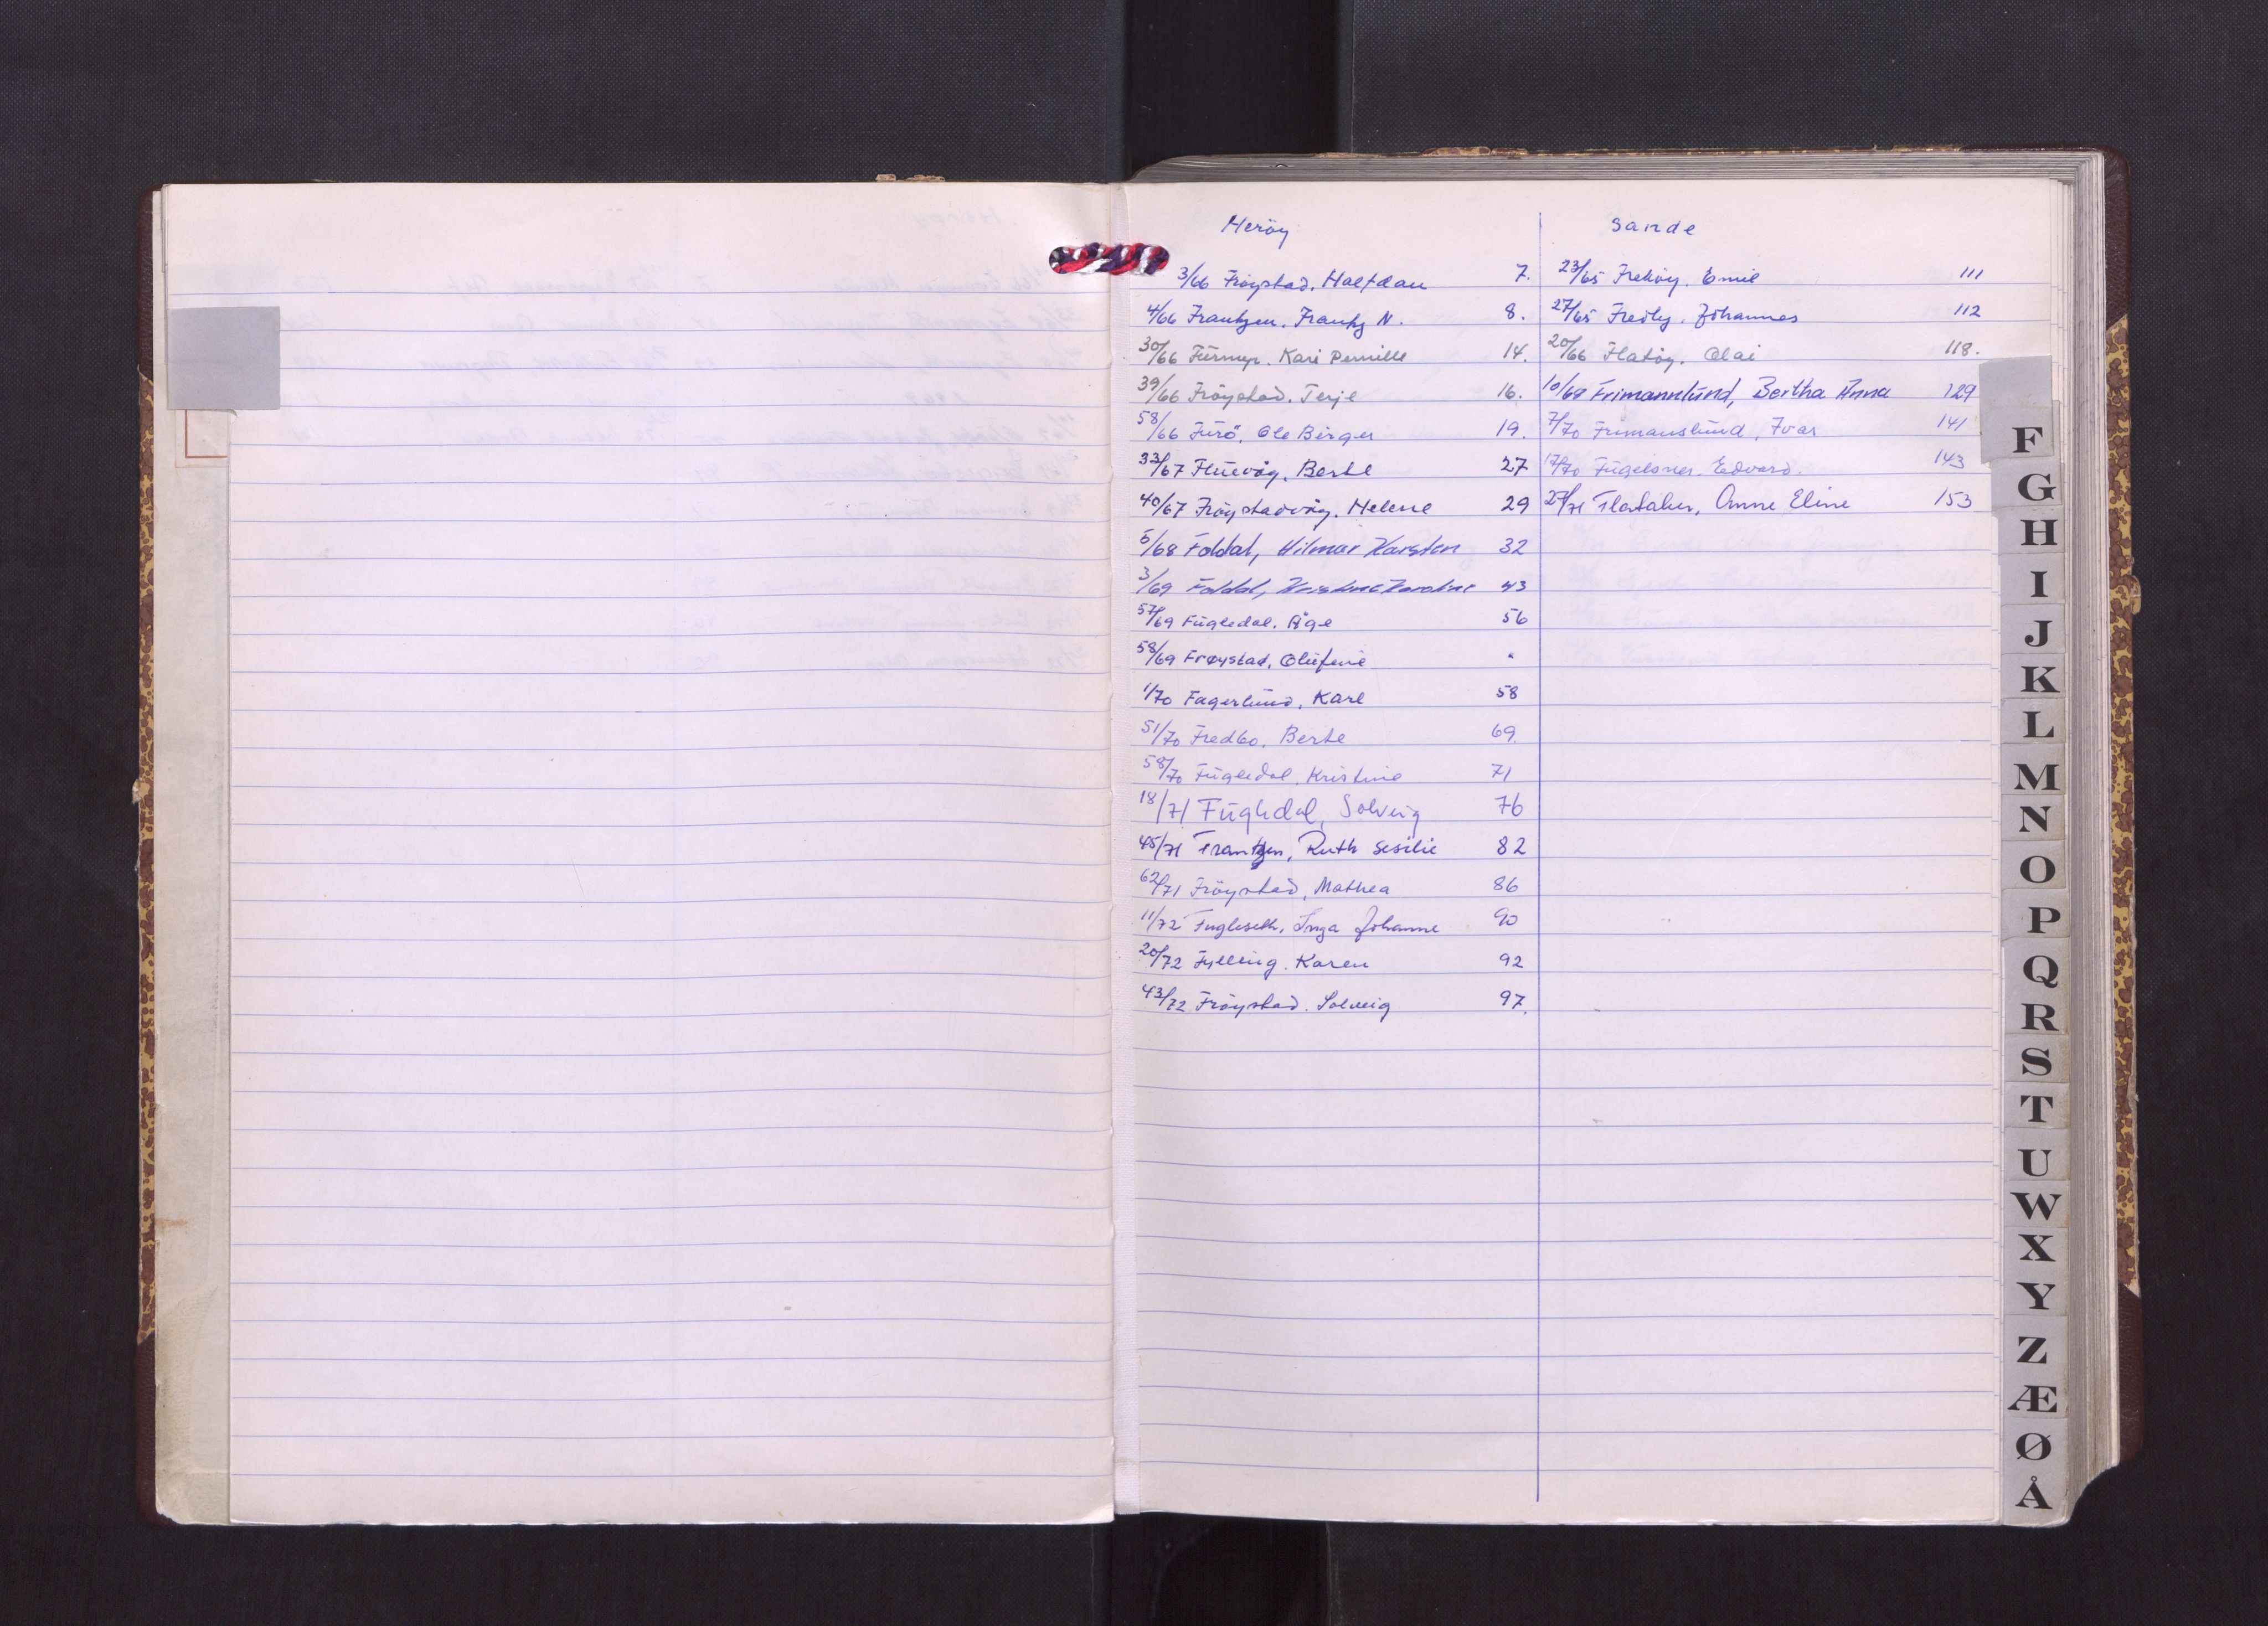 Heröy
3/66 Fröystad, Halfdan 7.
4/66 Frantzen, Frantz N. 8.
30/66 Furmyr. Kari Pernille 14.
39/66 Fröystad, Terje 16.
58/66 Furö, Ole Birger 19.
33/67 Fluevåg, Berte 27
40/67 Fröystadvåg, Helene 29
5/68 Foldal, Hilmar Karsten 32
3/69 Foldal, 43
57/69 Fugledal, Åge 56
58/69 Frøystad, Olufine "
1/70 Fagerlund, Karl 58
51/70 Fredbo, Berte 69.
58/70 Fugledal, Kristine 71
18/71 Fugledal, Solveig 76
45/71 Frantzen, Ruth Sesilie 82
62/71 Fröystad, Mathea 86
11/72 Fugleseth, Inga Johanne 90
20/72 Fylling, Karen 92
43/72 Fröystad. Solveig 97.
Sande
23/65 Emil 111
27/65 Fredly, Johannes 112
20/66 Flatöy, Olai 118.
10/68 Frimannlund, Bertha Anna 129
7/70 Frimanslund, Ivar 141
17/70 Fugelsnes, Edvard. 143
27/71 Anne Eline 153
F
G
H
I
J
K
L
M
N
O
P
Q
R
S
T
U
W
X
Y
Z
Æ
Ø
Å